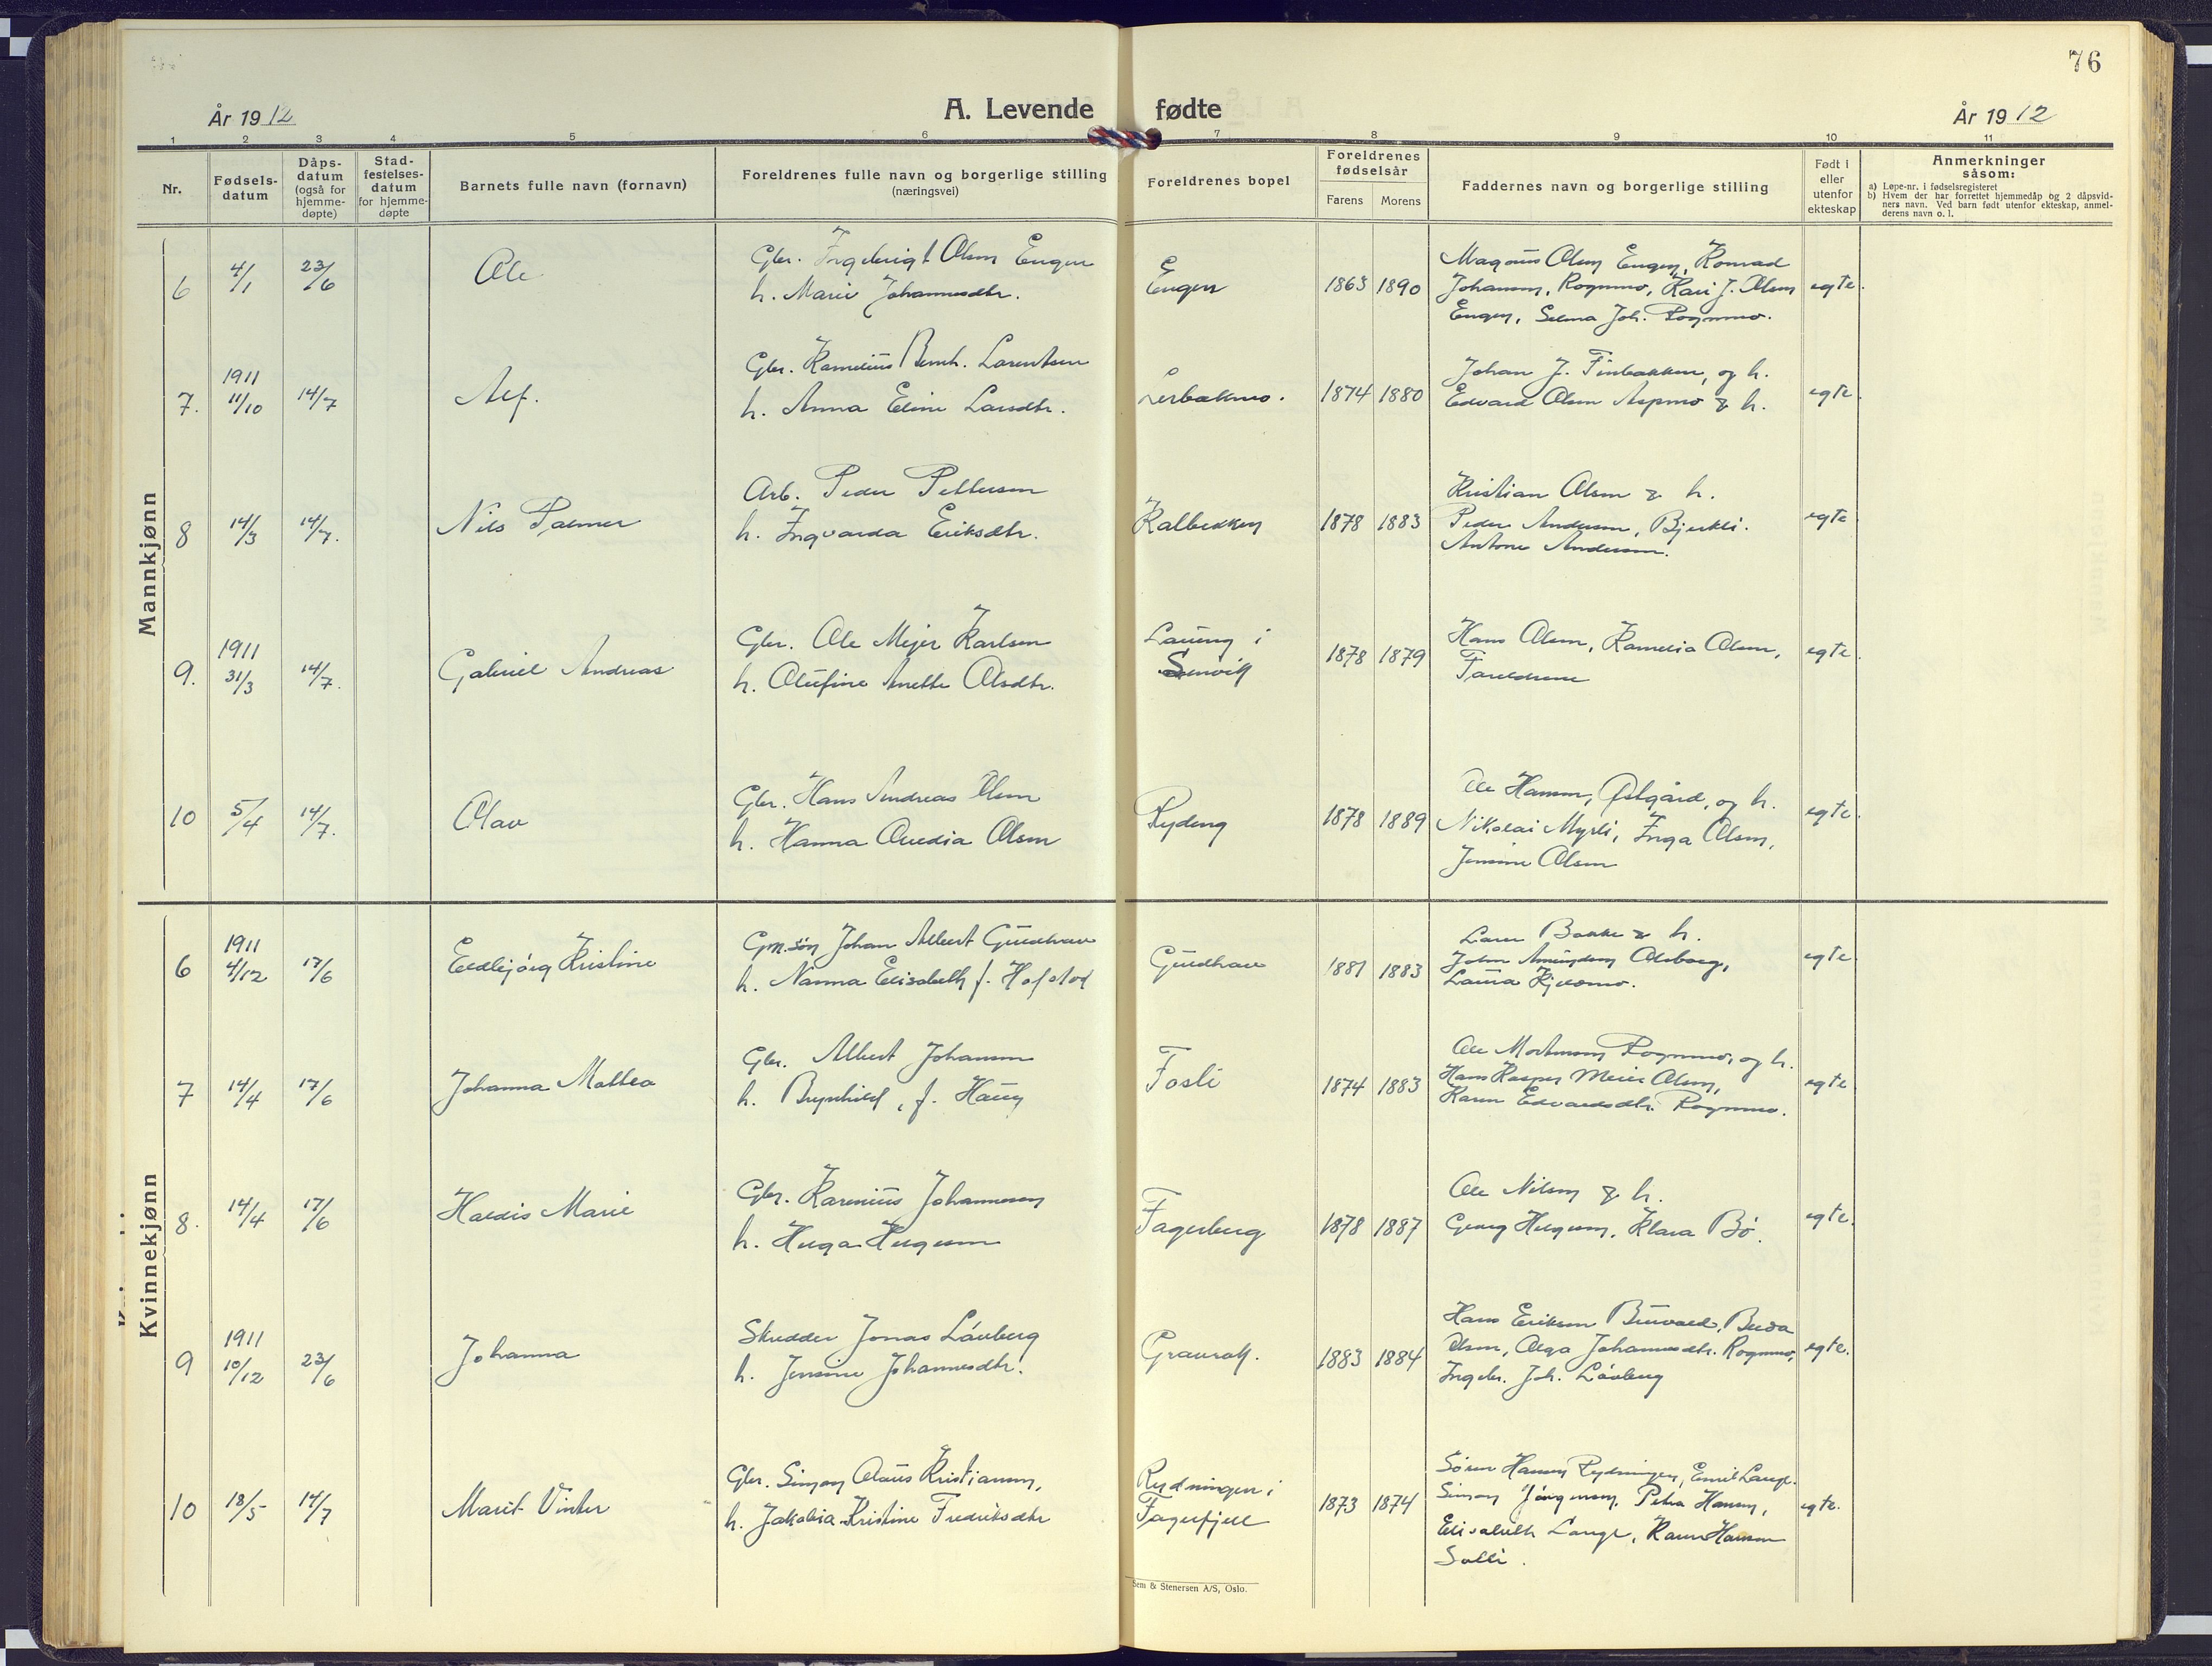 76
År 1912
A. Levende fødte
År 1912
1 2 3 4 5 6 7 8 9 10 11
Nr.
Fødsels-
datum
Dåps-
datum
(også for
hjemme-
døpte)
Stad-
festelses-
datum
for hjemme-
døpte
Barnets fulle navn (fornavn)
Foreldrenes fulle navn og borgerlige stilling
(næringsvei)
Foreldrenes bopel
Foreldrenes
fødselsår
Farens Morens
Faddernes navn og borgerlige stilling
Født i
eller
utenfor
ekteskap
Anmerkninger
såsom:
a) Løpe-nr. i fødselsregisteret
b) Hvem der har forrettet hjemmedåp og 2 dåpsvid-
ners navn. Ved barn født utenfor ekteskap, anmel-
derens navn o. l.
Mannkjønn
6 4/1 23/6 Ole
Gbr. Ingebrigt Olsen Engen
h. Marie Johannesdtr.
Engen
1863 1890
Magnus Olsen Engen, Konrad
Johansen, Rognmo, Kari J. Olsen
Engen, Selma Joh. Rognmo.
egte.
7. 1911
11/10 14/7 Alf.
Gbr. Kornelius Bernh. Lorentsen
h. Anna Eline Larsdtr.
Lerbakmo.
1874 1880
Johan J. Finbakken, og h.
Edvard Olsen Aspmo & h.
egte.
8 14/3 14/7. Nils Palmer
Arb. Peder Pettersen
h. Ingvarda Eriksdtr.
Kalbekken
1878 1883
Kristian Olsen & h.
Peder Andersen, Bjerkli.
Antone Andersen.
egte
9. 1911
31/3 14/7. Gabriel Andreas
Gbr. Ole Mejer Karlsen
h. Olufine Anette Olsdtr.
i
Senvik
1878 1879
Hans Olsen, Kornelia Olsen,
Foreldrene
egte.
10 5/4 14/7. Olav
Gbr. Hans Andreas Olsen
h. Hanna Olsen
Rydeng
1878 1889
Ole Hansen, Østgård, og h.
Nikolai Myrli, Inga Olsen,
Jensine Olsen
egte.
Kvinnekjønn
6 1911
4/12 17/6 Eldbjórg Kristine
Gm.søn Johan Albert Guldhav
h. Nanna Elisabeth f. Hofstad
Guldhav
1881 1883
Bakke & h.
John Amundsen Olsborg,
Laura Kjelsmo.
egte
7 14/4 17/6 Johanna Mattea
Gbr. Albert Johansen
h. Brynhild, f. Haug
Fosli
1874 1883
Ole Mortensen Rognmo, og h.
Hans Kasper Meier Olsen,
Karen Edvardsdtr. Rognmo.
egte
8. 14/4 17/6 Haldis Marie
Gbr. Karenius Johannesen
h. Helga Helgesen
Fagerberg
1878 1887
Ole Nilsen & h.
Georg Helgesen, Klara Bø.
egte.
9 1911
10/12 23/6 Johanna
Skredder Jonas Låvberg
h. Jensine Johannesdtr.
1883 1884
Hans Eriksen Buvold, Berda
Olsen, Olga Johannesdtr. Rognmo,
Ingebr. Joh. Låvberg
egte.
10 18/5 14/7 Marit Vinter
Gbr. Simon Olaus Kristiansen,
h. Jakobia Kristine Fredriksdtr
Rydningen i
Fagerfjell
1873 1874
Søren Hansen Rydningen, Emil Lange.
Simon Jørgensen, Petra Hansen,
Elisabeth Lange, Karen Hansen
Solli.
egte.
Sem & Stenersen A/S, Oslo.